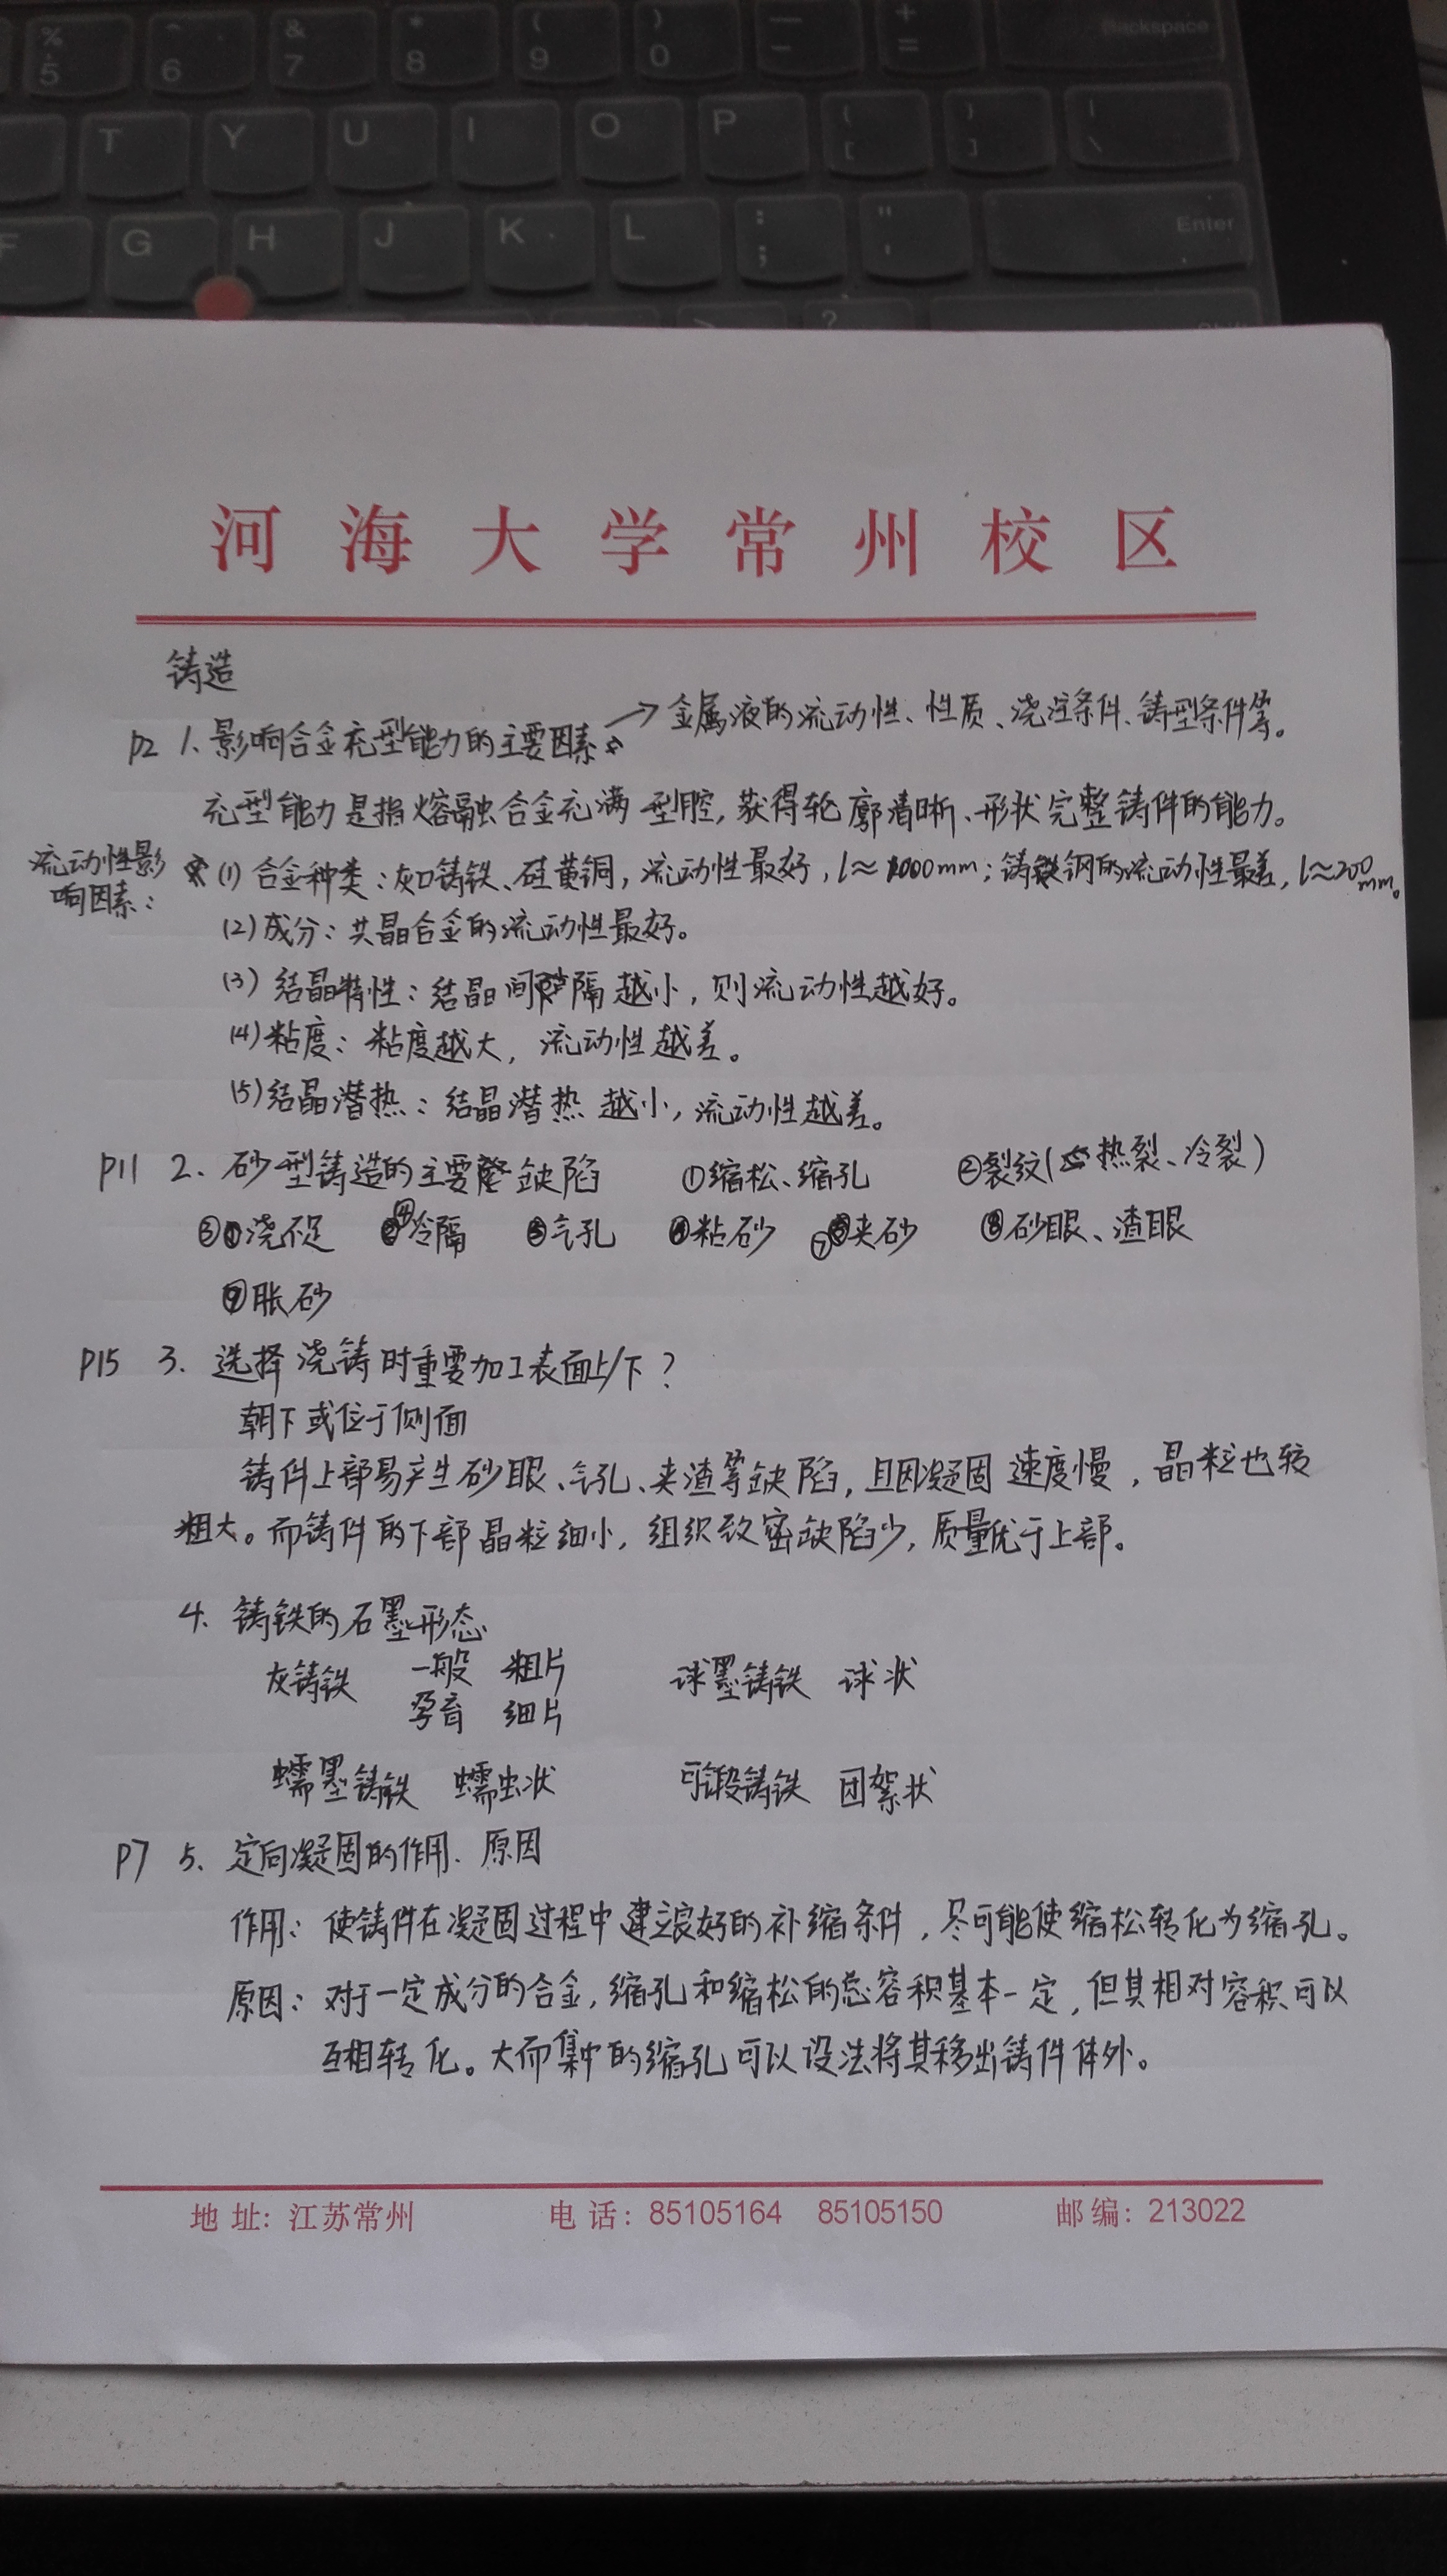 % 5 ^ 6 & 7 * 8 ( 9 ) 0 — - + = Backspace
T Y U I O P { [ } ] | \
F G H J K L : ; " ' Enter
> ? Shift
河海大学常州校区
铸造
P2 1、影响合金充型能力的主要因素 → 金属液的流动性、性质、浇注条件、铸型条件等。
充型能力是指熔融合金充满型腔,获得轮廓清晰、形状完整铸件的能力。
流动性影响因素:
(1) 合金种类:灰口铸铁、硅黄铜,流动性最好,l≈1000mm;铸钢的流动性最差,l≈200mm。
(2) 成分:共晶合金的流动性最好。
(3) 结晶特性:结晶间隔越小,则流动性越好。
(4) 粘度:粘度越大,流动性越差。
(5) 结晶潜热:结晶潜热越小,流动性越差。
P11 2、砂型铸造的主要缺陷 ①缩松、缩孔 ②裂纹(热裂、冷裂)
③浇不足 ④冷隔 ⑤气孔 ⑥粘砂 ⑦夹砂 ⑧砂眼、渣眼
⑨胀砂
P15 3. 选择浇铸时重要加工表面上/下?
朝下或位于侧面
铸件上部易产生砂眼、气孔、夹渣等缺陷,且因凝固速度慢,晶粒也较
粗大。而铸件的下部晶粒细小,组织致密缺陷少,质量优于上部。
4. 铸铁的石墨形态
灰铸铁 一般 粗片 球墨铸铁 球状
孕育 细片
蠕墨铸铁 蠕虫状 可锻铸铁 团絮状
P7 5、定向凝固的作用. 原因
作用:使铸件在凝固过程中建立良好的补缩条件,尽可能使缩松转化为缩孔。
原因:对于一定成分的合金,缩孔和缩松的总容积基本一定,但其相对容积可以
互相转化。大而集中的缩孔可以设法将其移出铸件体外。
地址:江苏常州 电话:85105164 85105150 邮编:213022